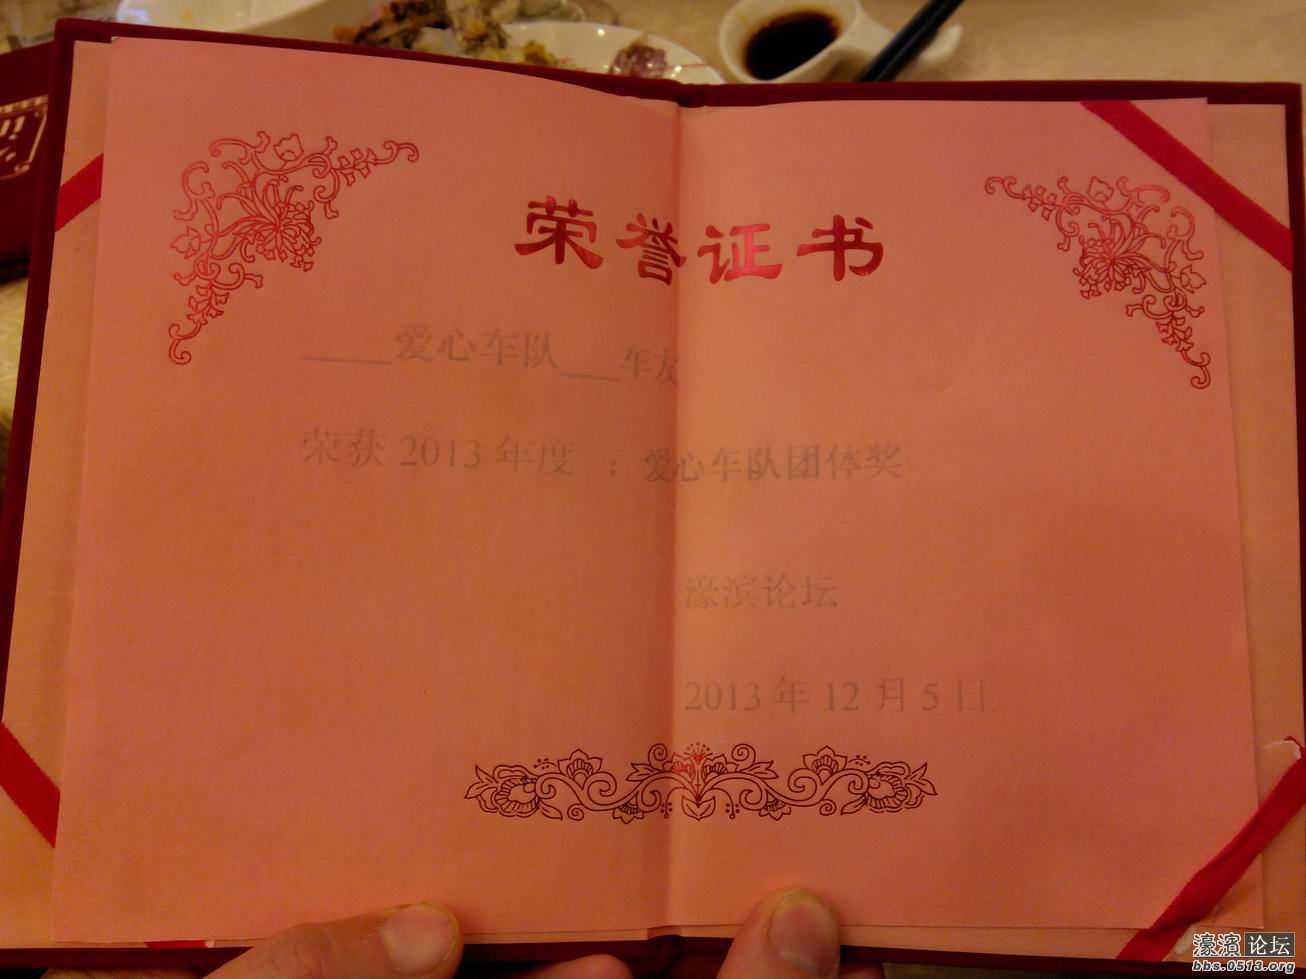 荣誉证书
____爱心车队___车友
荣获 2013 年度 ：爱心车队团体奖
濠滨论坛
2013 年 12 月 5 日
濠滨论坛
bbs.0513.org